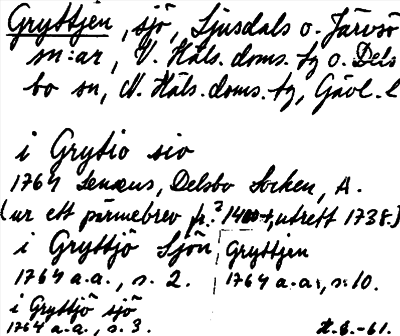 Gryttjen, sjö, Ljusdals o. Järvsö
sn:ar, V. Häls. doms. fg o. Dels
bo sn, N. Häls. doms. fg, Gävl. l
i Grytio sio
1764 Lenæus, Delsbo Socken, A.
(ur ett pärmebrev fr.? 1400-t, utrett 1738.)
i Gryttjö Sjön
1764 a.a., s. 2.
Gryttjen
1764 a.a., s. 10.
i Gryttjö sjö
1764 a.a., s. 3.
-61.